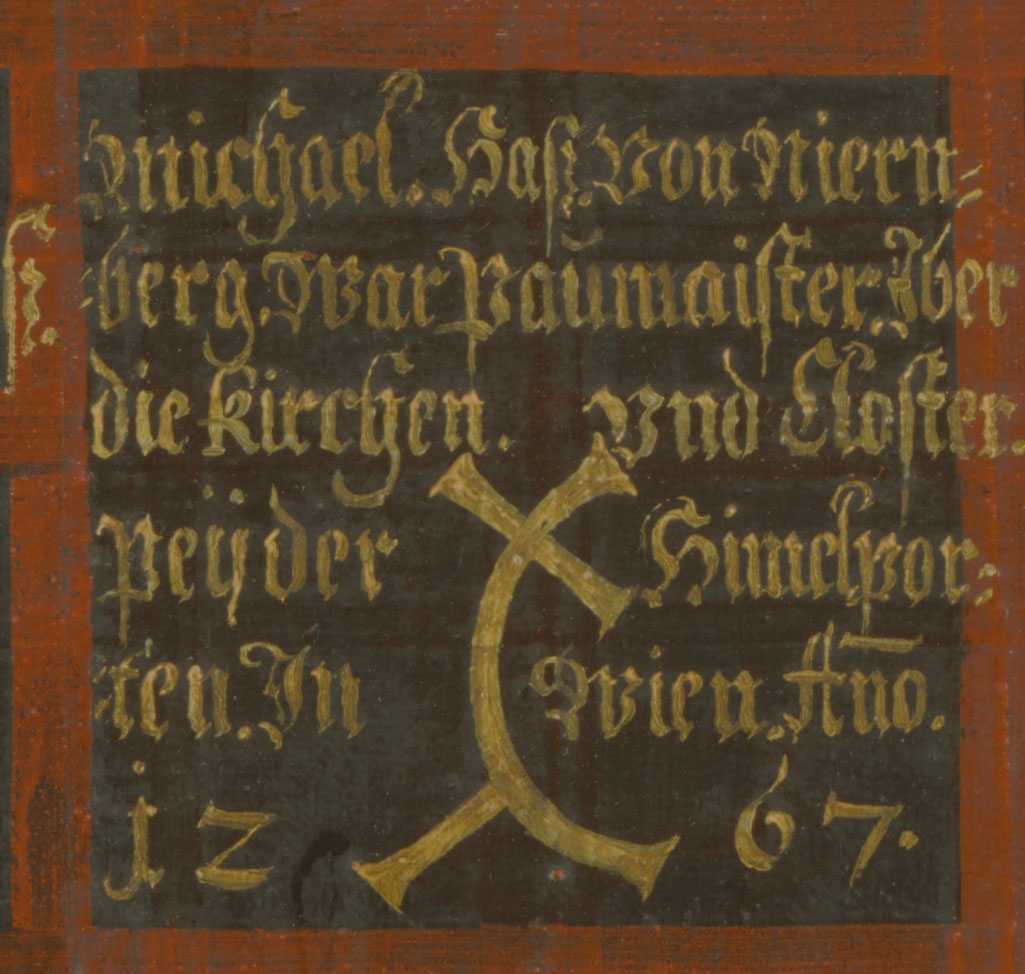 Michael. Haß. von Niern=
=berg. War Paumaister. Jber
die Kirchen. vnd Closter.
Peÿ der Himelpor=
ten. Jn Wien. Año.
1267.